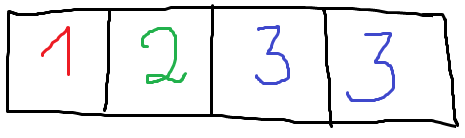 1 2 3 3